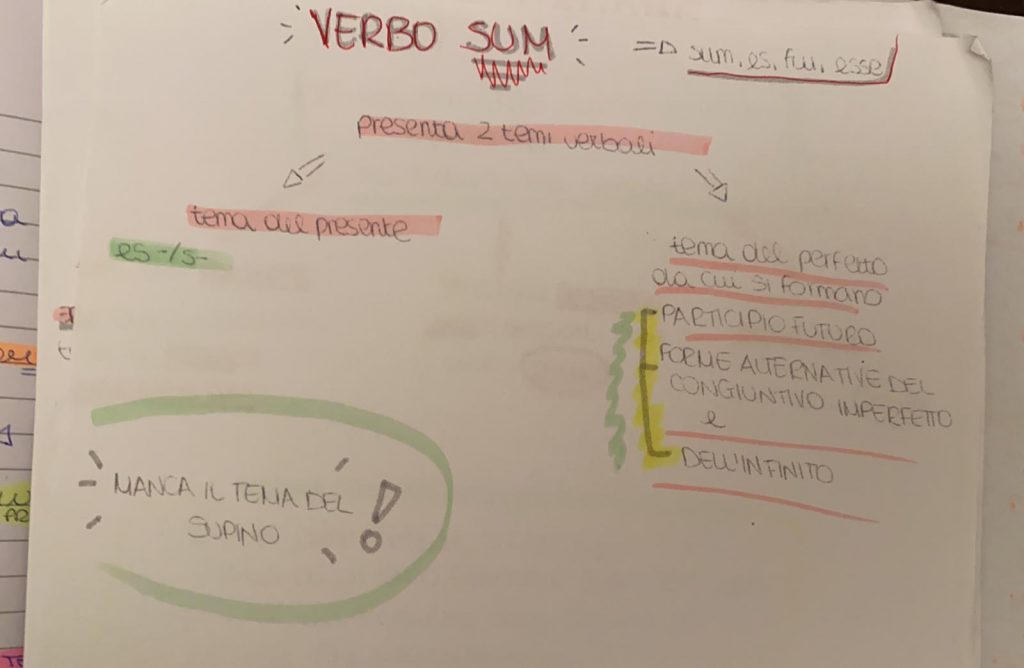 VERBO SUM => sum, es, fui, esse
presenta 2 temi verbali
tema del presente
es-/s-
tema del perfetto
da cui si formano
PARTICIPIO FUTURO
FORME ALTERNATIVE DEL
CONGIUNTIVO IMPERFETTO
e
DELL'INFINITO
MANCA IL TEMA DEL
SUPINO !